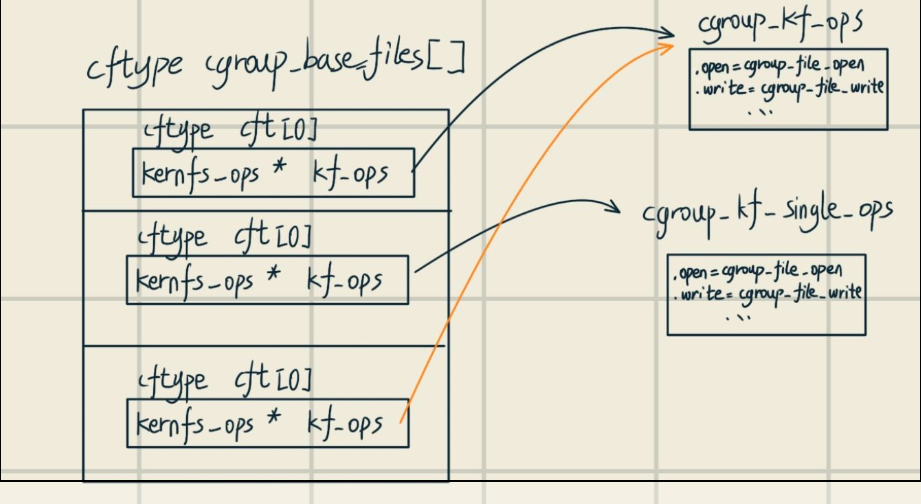 cftype cgroup_base_files[]
cftype cft[0]
kernfs_ops * kf_ops
cftype cft[0]
kernfs_ops * kf_ops
cftype cft[0]
kernfs_ops * kf_ops
cgroup_kf_ops
.open=cgroup_file_open
.write=cgroup_file_write
...
cgroup_kf_single_ops
.open=cgroup_file_open
.write=cgroup_file_write
...